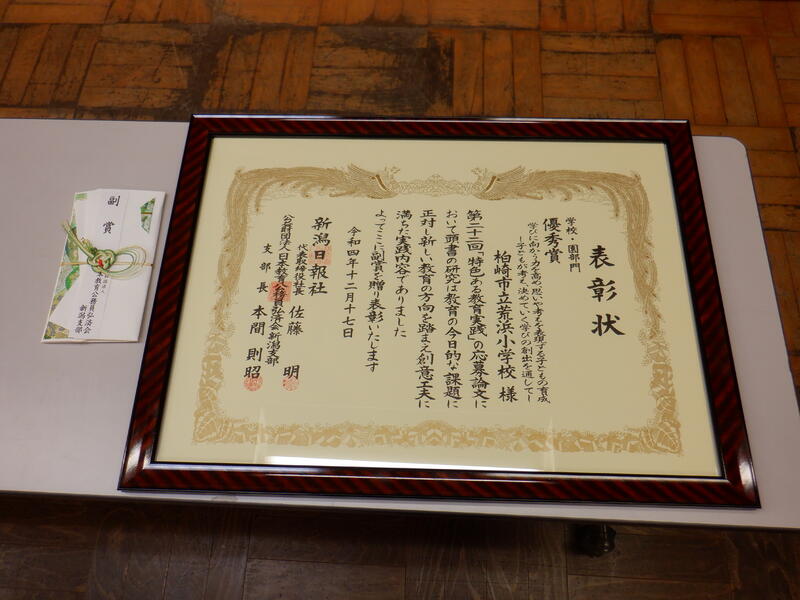 表彰状
学校・園部門
優秀賞
学びに向かう力を高め、思いや考えを表現する子どもの育成
―子どもが考え、決めていく学びの創出を通して―
柏崎市立荒浜小学校 様
第二十二回「特色ある教育実践」の応募論文に
おいて頭書の研究は教育の今日的な課題に
正対し新しい教育の方向を踏まえ創意工夫に
満ちた実践内容でありました
よってここに副賞を贈り表彰いたします
令和四年十二月十七日
新潟日報社
代表取締役社長 佐藤 明
公益財団法人日本教育公務員弘済会新潟支部
支部長 本間 則昭
副賞
日本教育公務員弘済会
新潟支部